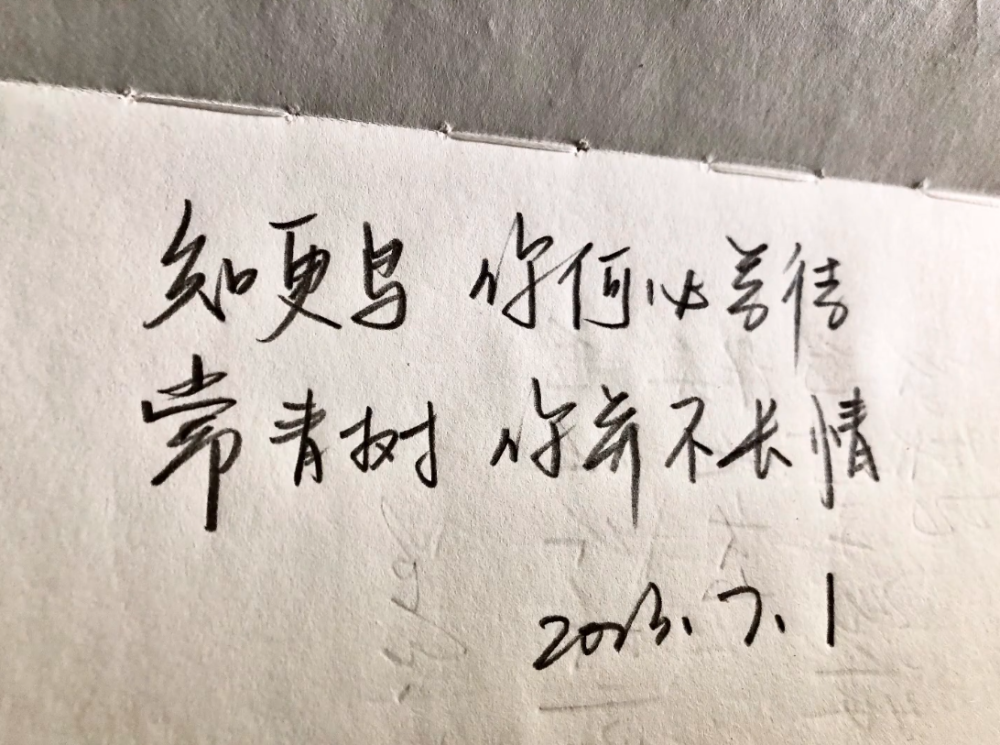 知更鸟 你何必苦待
常青树 你并不长情
2023.7.1